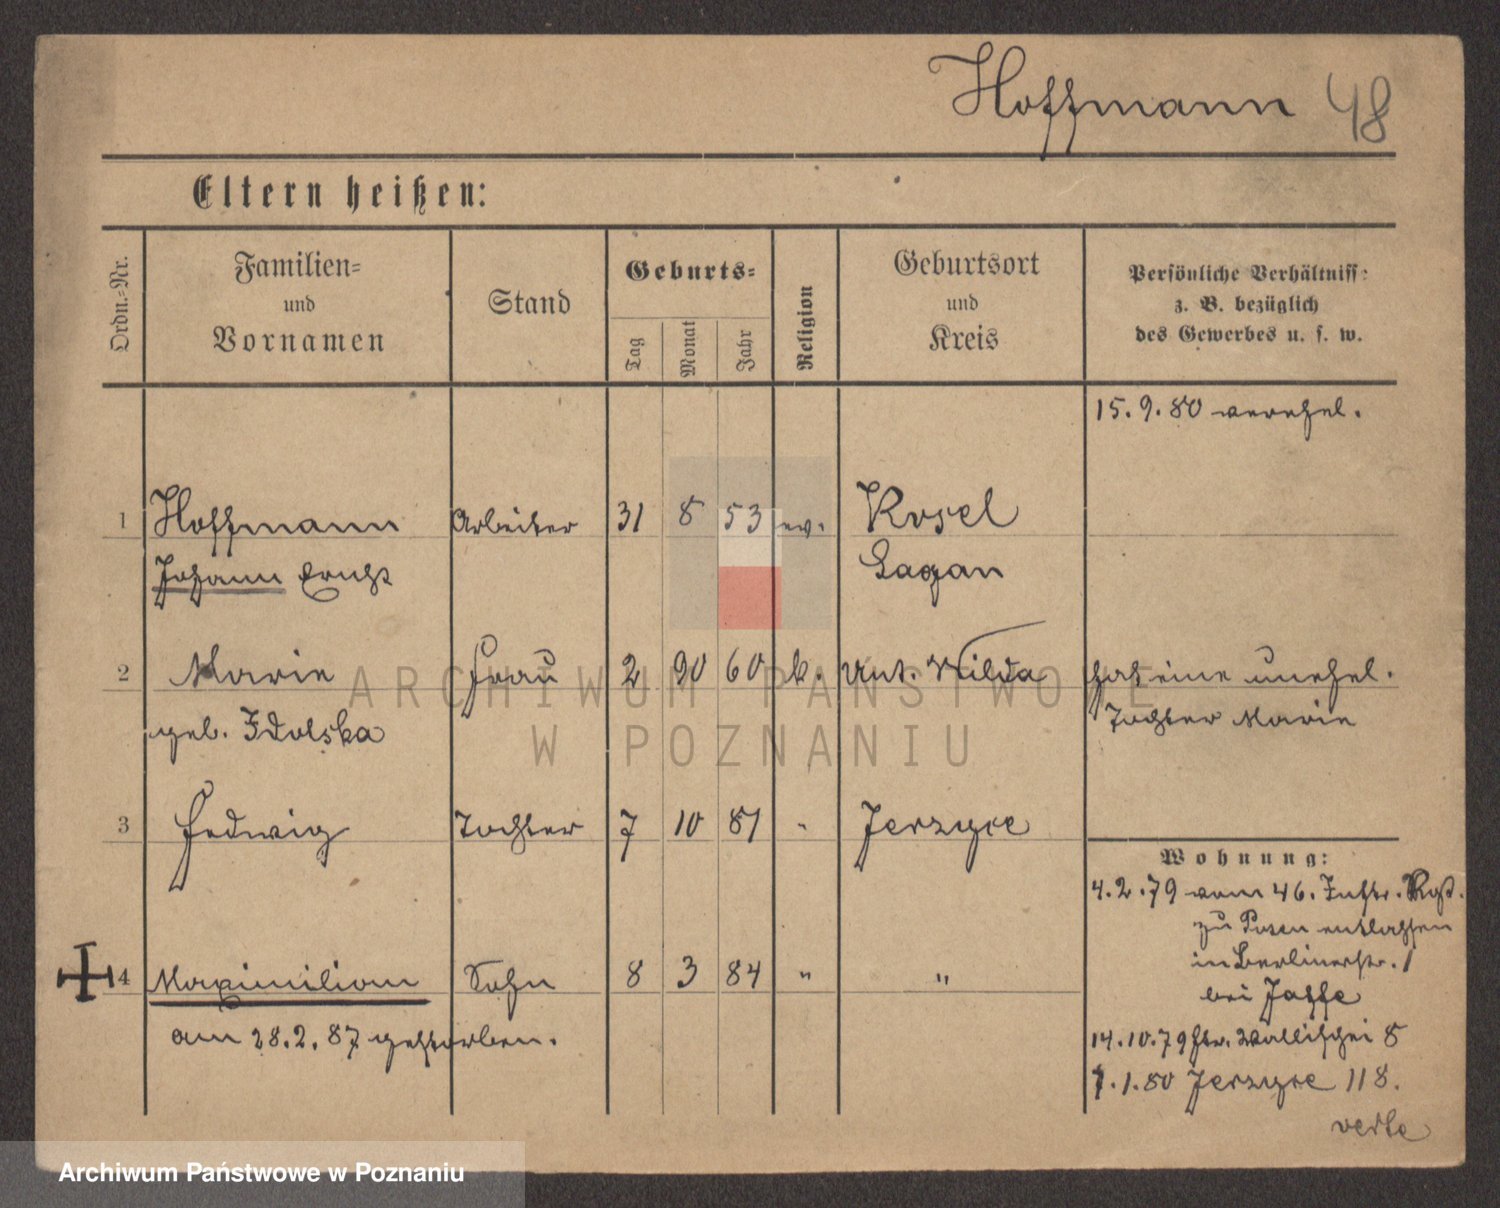 Hoffmann 48
Eltern heißen:
Ordn.=Nr.
Familien=
und
Vornamen
Stand
Geburts=
Tag
Monat
Jahr
Religion
Geburtsort
und
Kreis
Persönliche Verhältniss:
z. B. bezüglich
des Gewerbes u. s. w.
15.9.80 verehel.
1 Hoffmann Arbeiter 31 8 53 ev. Kosel
Johann Ernst Sagan
2 Marie Frau 2 90 60 k. Unt. Wilda hat eine unehel.
geb. Idolska Tochter Marie
3 Hedwig Tochter 7 10 81 " Jerzyce
4 Maximilian Sohn 8 3 84 " "
am 28.2.87 gestorben.
Wohnung:
4.2.79 vom 46. Inftr. Rgt.
zu Posen entlassen
in Berlinerstr. 1
bei Jaffe
14.10.79 Wallischei 8
1.1.80 Jerzyce 118.
verte
ARCHIWUM PAŃSTWOWE
W POZNANIU
Archiwum Państwowe w Poznaniu